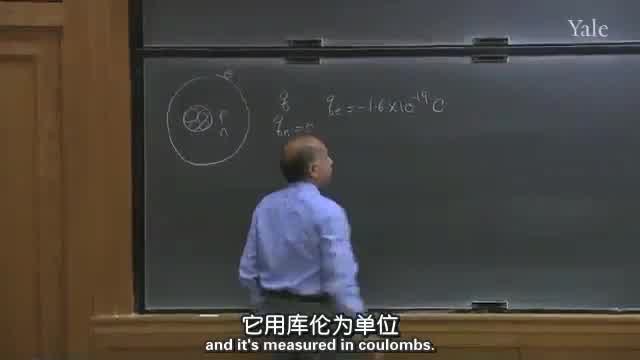 Yale
e
p
n
q
qₑ = -1.6 x 10⁻¹⁹ C
qₙ = 0
它用库伦为单位
and it's measured in coulombs.